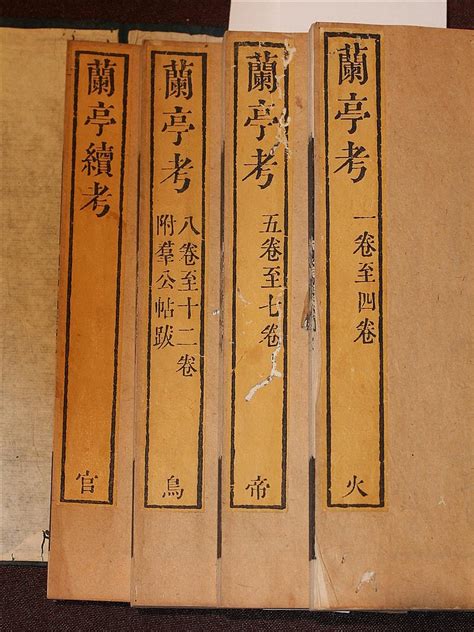 蘭亭考
一卷至四卷
火
蘭亭考
五卷至七卷
帝
蘭亭考
八卷至十二卷
附羣公帖跋
鳥
蘭亭續考
官